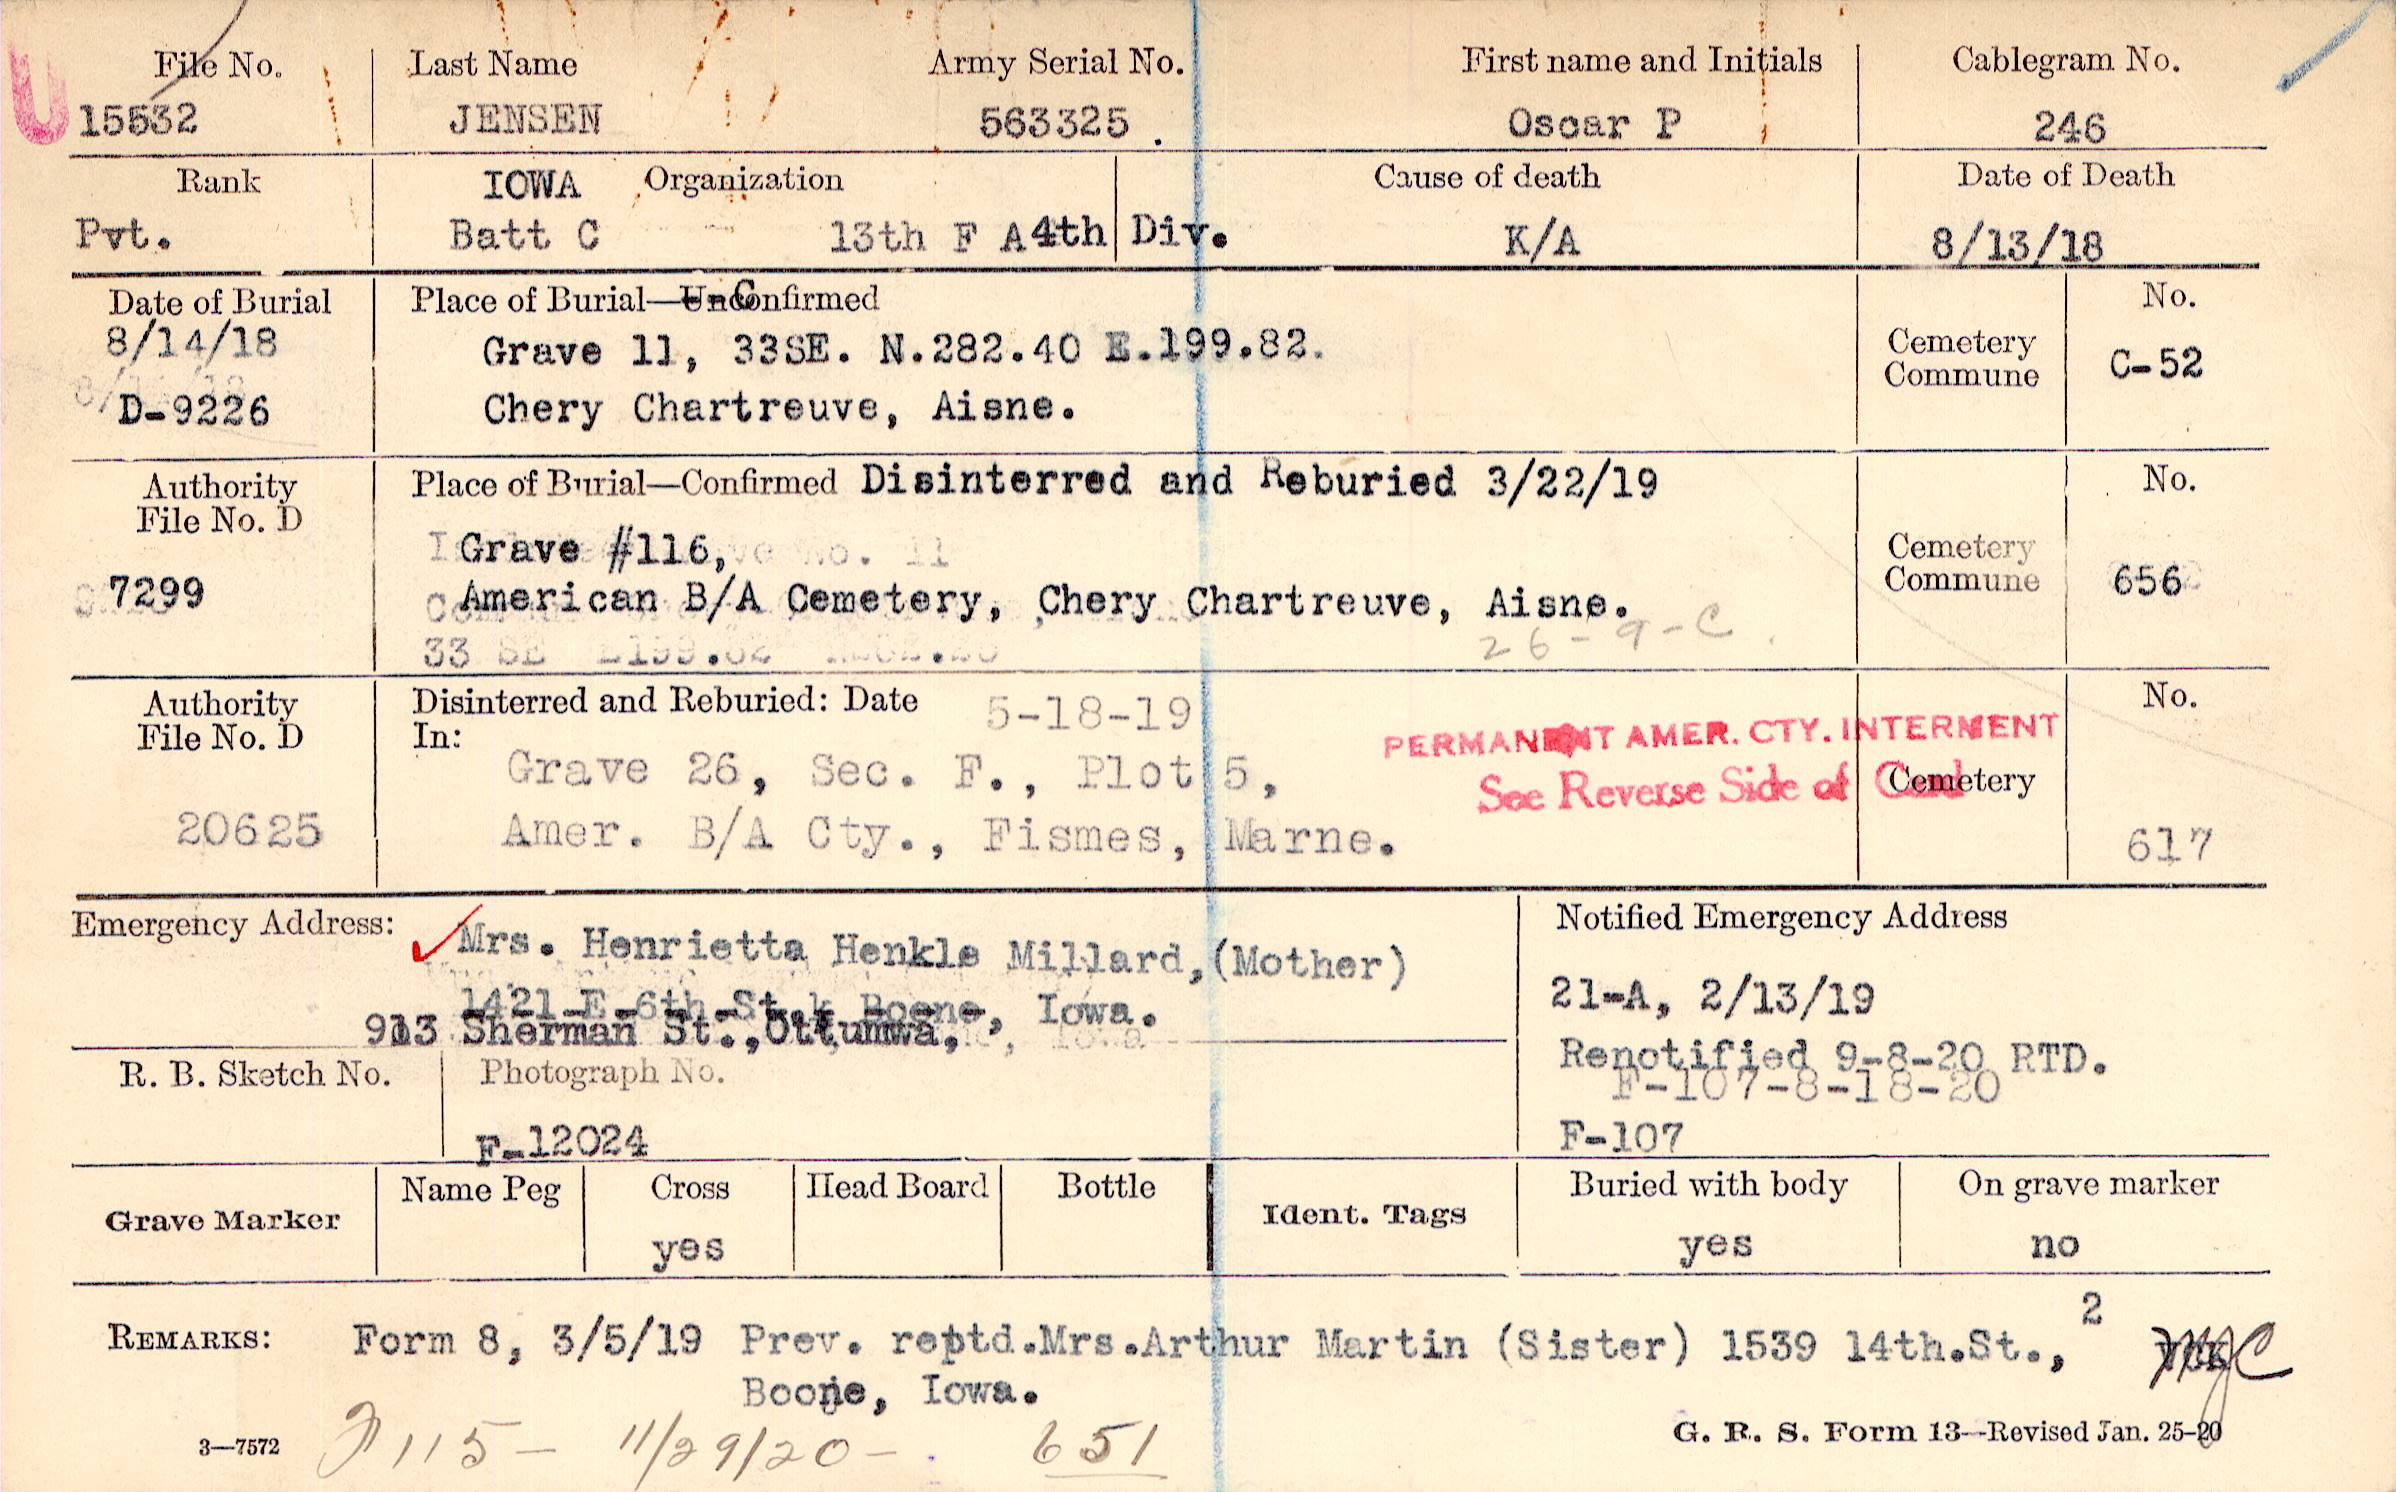 File No. Last Name Army Serial No. First name and Initials Cablegram No.
U 15532 JENSEN 563325 . Oscar P 246
Rank IOWA Organization Cause of death Date of Death
Pvt. Batt C 13th F A 4th Div. K/A 8/13/18
Date of Burial Place of Burial—Un-Confirmed No.
8/14/18 Grave 11, 33SE. N.282.40 E.199.82. Cemetery Commune C-52
D-9226 Chery Chartreuve, Aisne.
Authority File No. D Place of Burial—Confirmed Disinterred and Reburied 3/22/19 No.
Grave #116, Cemetery Commune
7299 American B/A Cemetery, Chery Chartreuve, Aisne. 656
33 SE 26-9-C
Authority File No. D Disinterred and Reburied: Date 5-18-19 No.
In: PERMANENT AMER. CTY. INTERMENT
Grave 26, Sec. F., Plot 5, See Reverse Side of Card Cemetery
20625 Amer. B/A Cty., Fismes, Marne. 617
Emergency Address: Mrs. Henrietta Henkle Millard,(Mother) Notified Emergency Address
1421 E 6th St. Boone, Iowa. 21-A, 2/13/19
913 Sherman St.,Ottumwa,
Renotified 9-8-20 RTD.
R. B. Sketch No. Photograph No. F-107-8-18-20
F-12024 F-107
Grave Marker Name Peg Cross Head Board Bottle Ident. Tags Buried with body On grave marker
yes yes no
REMARKS: Form 8, 3/5/19 Prev. reptd.Mrs.Arthur Martin (Sister) 1539 14th.St., 2
Boone, Iowa.
3—7572 115 - 11/29/20 - 651 G. R. S. Form 13—Revised Jan. 25-20